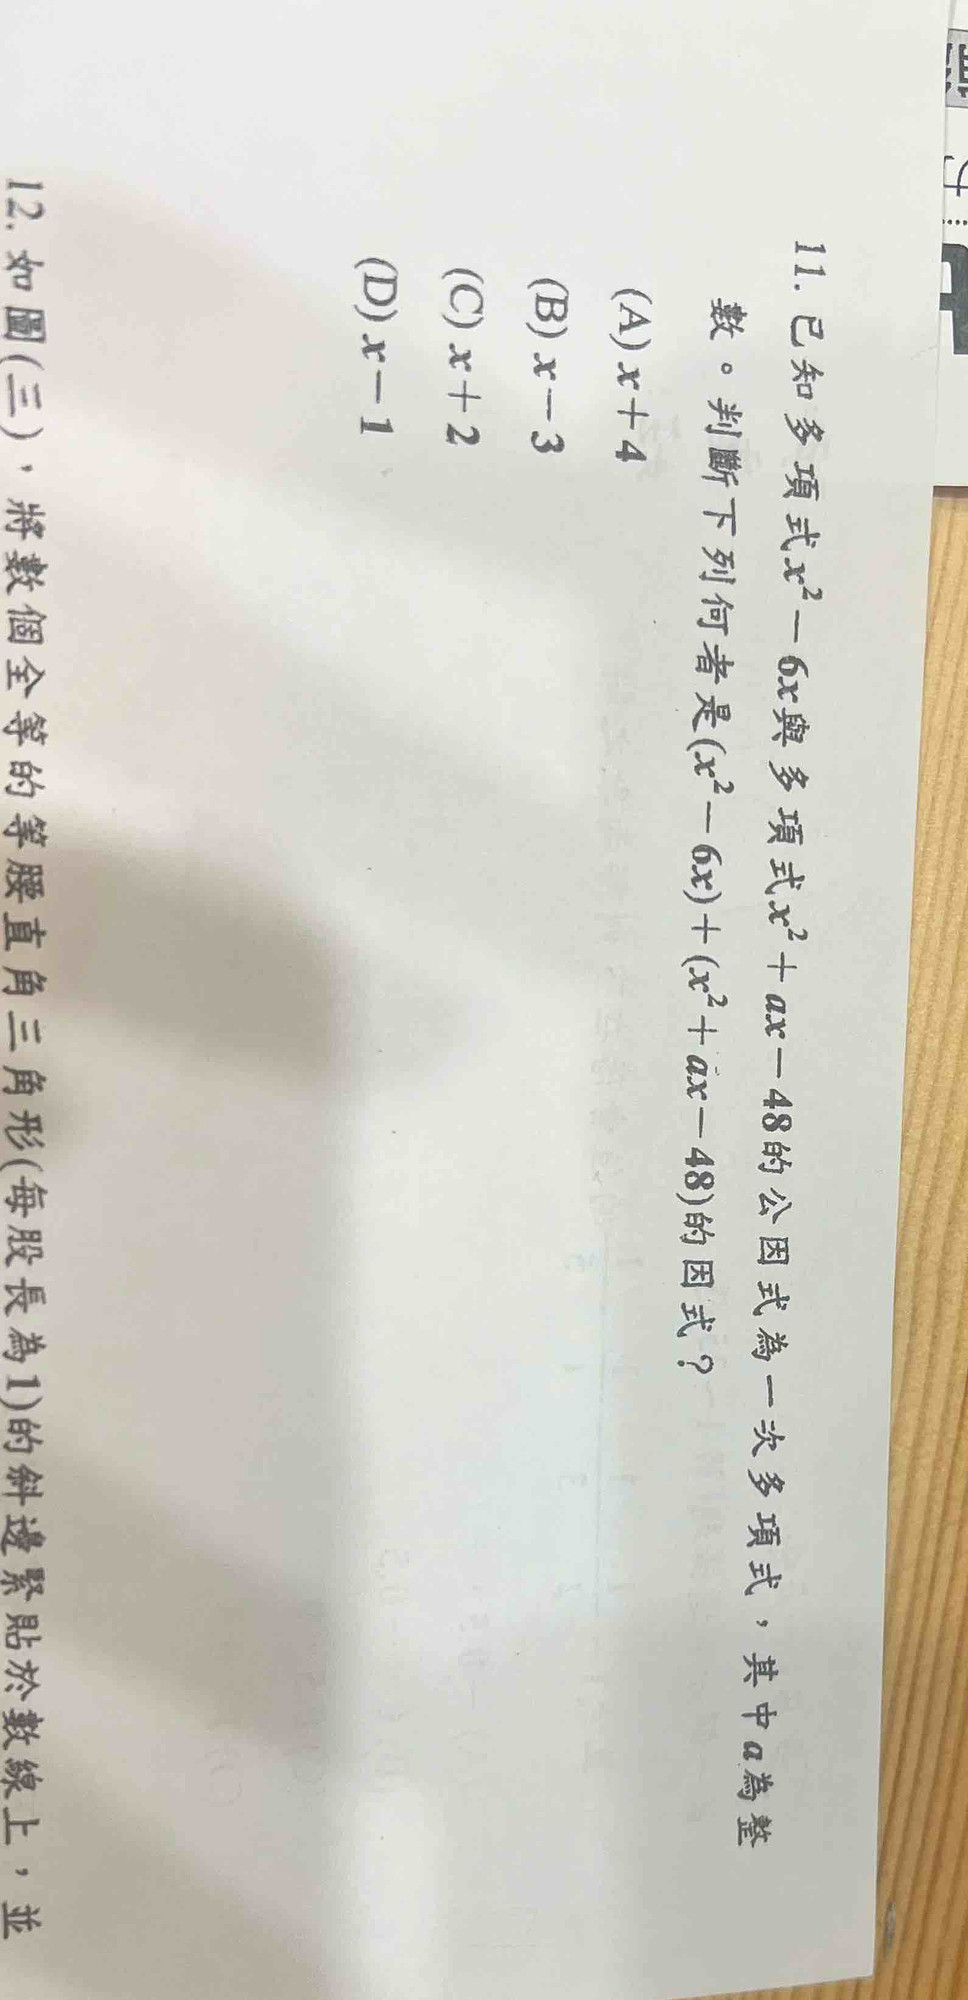 11. 已知多項式x²－6x與多項式x²＋ax－48的公因式為一次多項式，其中a為整
數。判斷下列何者是(x²－6x)＋(x²＋ax－48)的因式？
(A) x＋4
(B) x－3
(C) x＋2
(D) x－1
12. 如圖(三)，將數個全等的等腰直角三角形(每股長為1)的斜邊緊貼於數線上，並